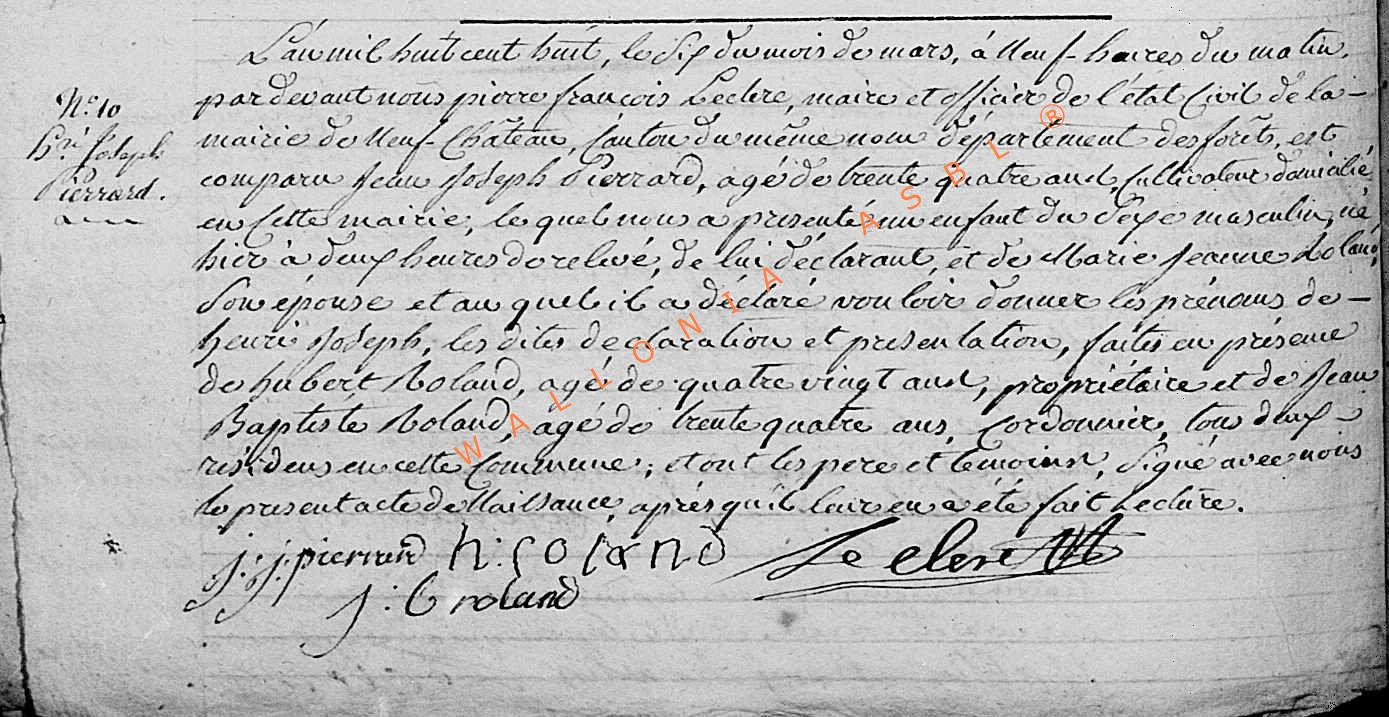 L'an mil huit cent huit, le dix du mois de mars, à Neuf-heures du matin,
par devant nous pierre françois Leclere, maire et officier de l'état Civil de la –
N.o 10
mairie de Neuf-Château, Canton du même nom département des forêts, est
h.ri Joseph
comparu Jean Joseph Pierrard, agé de trente quatre ans, Cultivateur domicilié
Pierrard.
en Cette mairie, le quel nous a présenté un enfant du Sexe masculin, né
hier à deux heures de relevé, de lui déclarant, et de Marie Jeanne Roland,
Son épouse et au quel il a déclaré vouloir donner les prénoms de –
henri Joseph, les dites declaration et presentation, faites en présence
de hubert Roland, agé de quatre vingt ans, propriétaire et de Jean
Baptiste Roland, agé de trente quatre ans, Cordonnier, tous deux –
résidens en cette Commune; et ont les pere et temoins, Signé avec nous
le present acte de Naissance, après qu'il leur en a été fait Lecture.
j: j: pierrard h: roland Le clere
j: b roland
WALLONIA ASBL ®